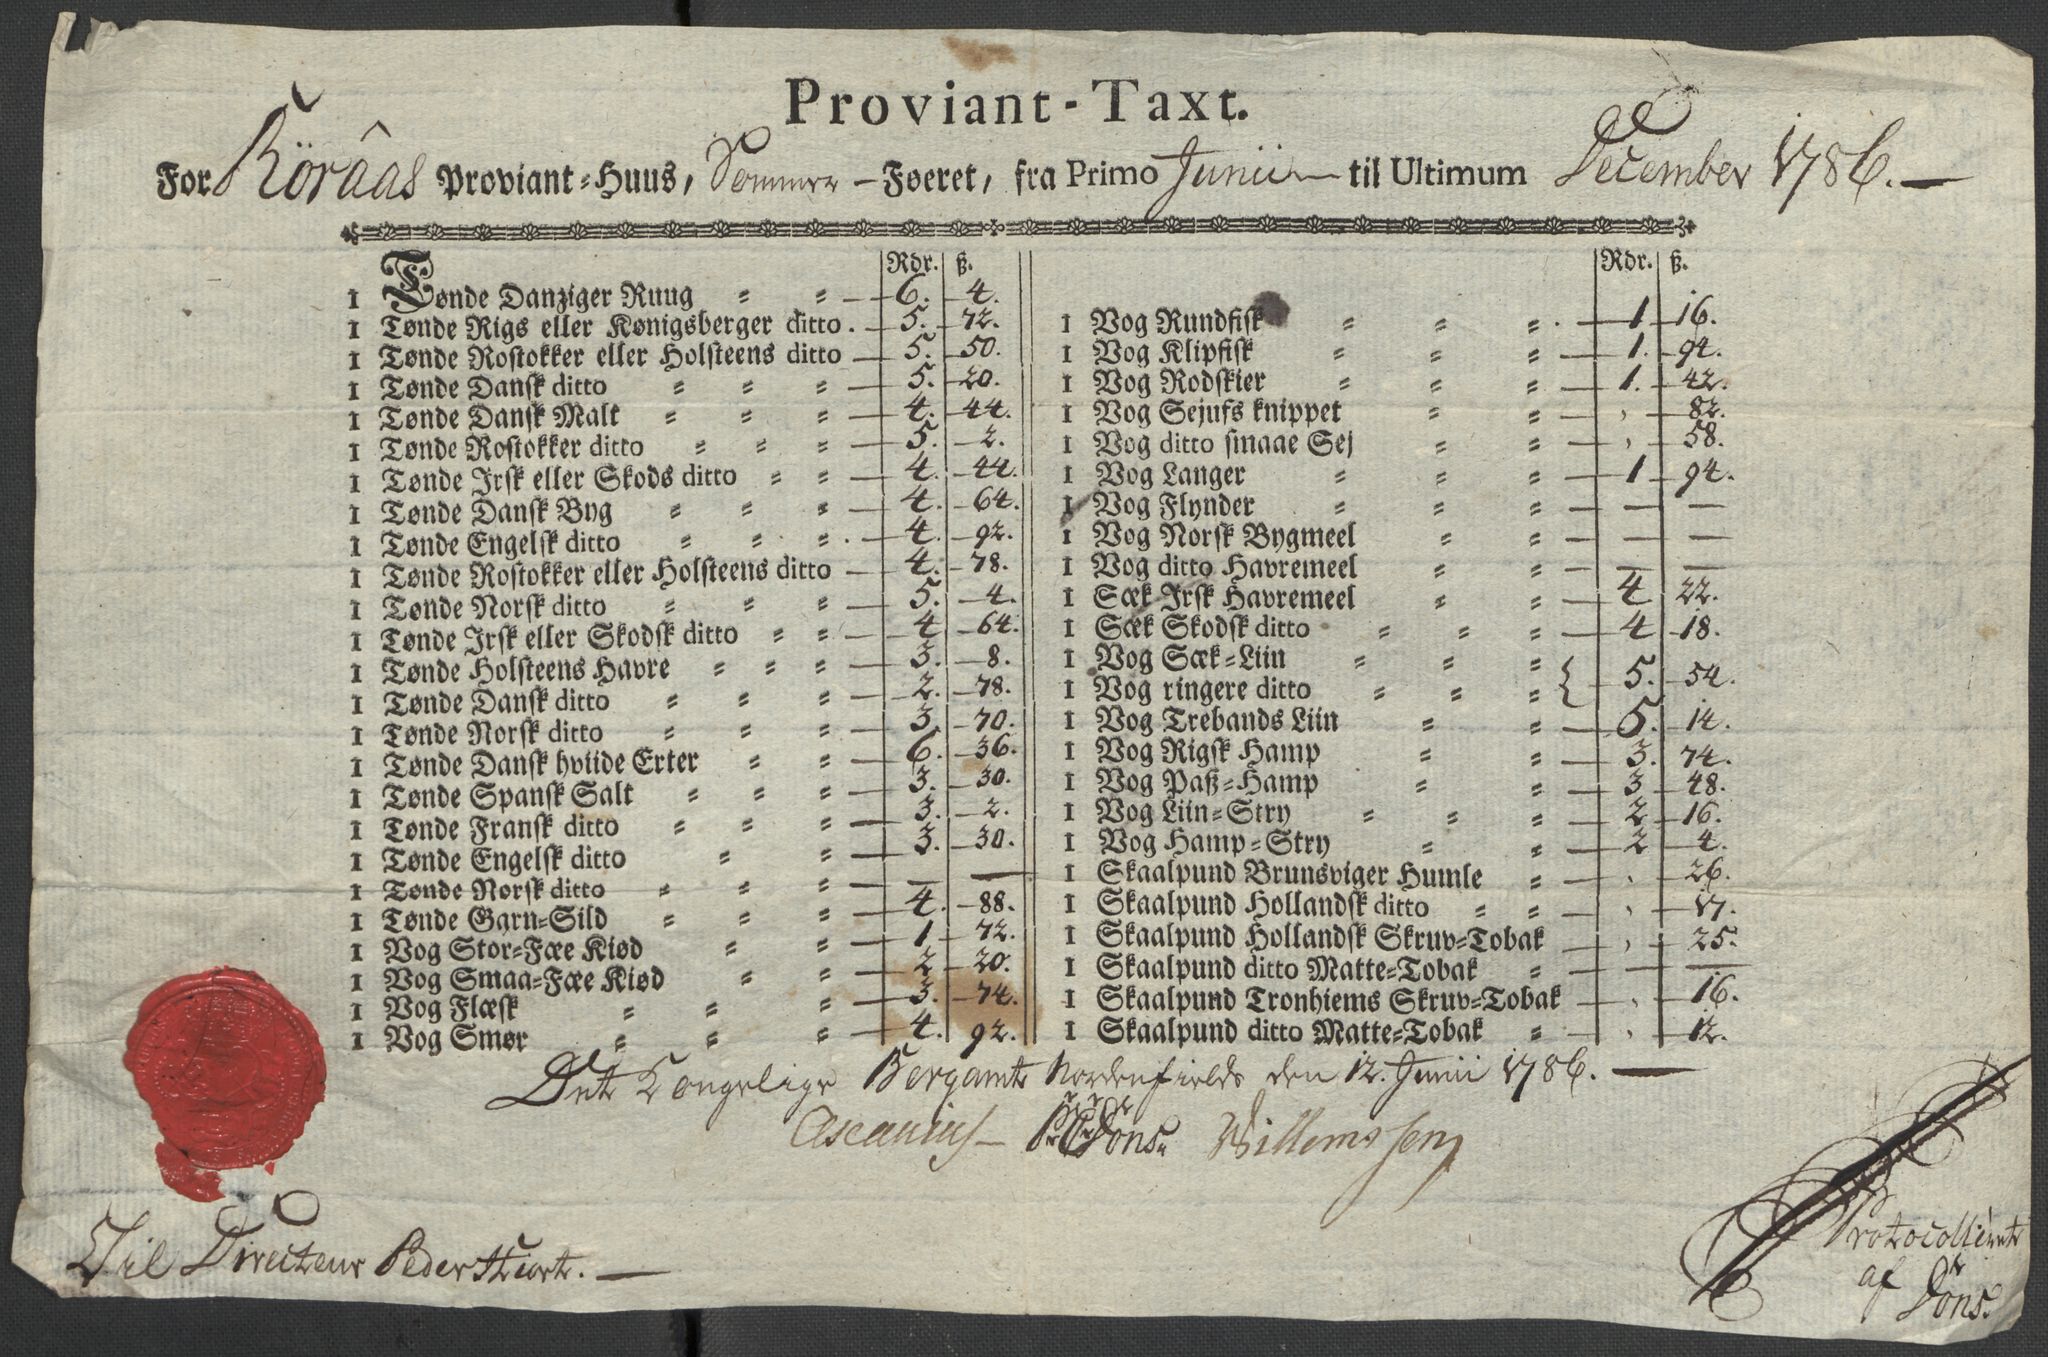 Proviant-Taxt.
For Röraas Proviant-Huus, Sommer - Føeret, fra Primo Junii til Ultimum December 1786. —
Rdr. ß.
1 Tønde Danziger Ruug 6. 4.
1 Tønde Rigs eller Kønigsberger ditto 5. 72.
1 Tønde Rostokker eller Holsteens ditto 5. 50.
1 Tønde Dansk ditto 5. 20.
1 Tønde Dansk Malt 4. 44.
1 Tønde Rostokker ditto 5. 2.
1 Tønde Irsk eller Skods ditto 4. 44.
1 Tønde Dansk Byg 4. 64.
1 Tønde Engelsk ditto 4. 92.
1 Tønde Rostokker eller Holsteens ditto 4. 78.
1 Tønde Norsk ditto 5. 4.
1 Tønde Irsk eller Skodsk ditto 4 64.
1 Tønde Holsteens Havre 3. 8.
1 Tønde Dansk ditto 2. 78.
1 Tønde Norsk ditto 3. 70.
1 Tønde Dansk hviide Erter 6. 36.
1 Tønde Spansk Salt 3. 30.
1 Tønde Fransk ditto 3. 2.
1 Tønde Engelsk ditto 3. 30.
1 Tønde Norsk ditto — —
1 Tønde Garn-Sild 4. 88.
1 Vog Stor-Fæe Kiød 1 72.
1 Vog Smaa-Fæe Kiød 2 20.
1 Vog Flæsk 3. 74.
1 Vog Smør 4. 92.
Rdr. ß.
1 Vog Rundfisk 1 16.
1 Vog Klipfisk 1. 94.
1 Vog Rodskier 1. 42.
1 Vog Sejufs knippet " 82.
1 Vog ditto smaae Sej " 58.
1 Vog Langer 1 94.
1 Vog Flynder — —
1 Vog Norsk Bygmeel — —
1 Vog ditto Havremeel — —
1 Sæk Irsk Havremeel 4 22.
1 Sæk Skodsk ditto 4 18.
1 Vog Sæk-Liin
1 Vog ringere ditto } 5. 54.
1 Vog Trebands Liin 5. 14.
1 Vog Rigsk Hamp 3. 74.
1 Vog Paß-Hamp 3 48.
1 Vog Liin-Stry 2 16.
1 Vog Hamp-Stry 2 4.
1 Skaalpund Brunsviger Humle " 26.
1 Skaalpund Hollandsk ditto " 17.
1 Skaalpund Hollandsk Skruv-Tobak " 25.
1 Skaalpund ditto Matte-Tobak — —
1 Skaalpund Tronhiems Skruv-Tobak " 16.
1 Skaalpund ditto Matte-Tobak " 12.
Det Kongelige Bergamt Nordenfields den 12. Junii 1786. —
Ascanius P. Dons. Willemssen
Til Directeur Peder Hiort. —
Protocolleret
af Dons.